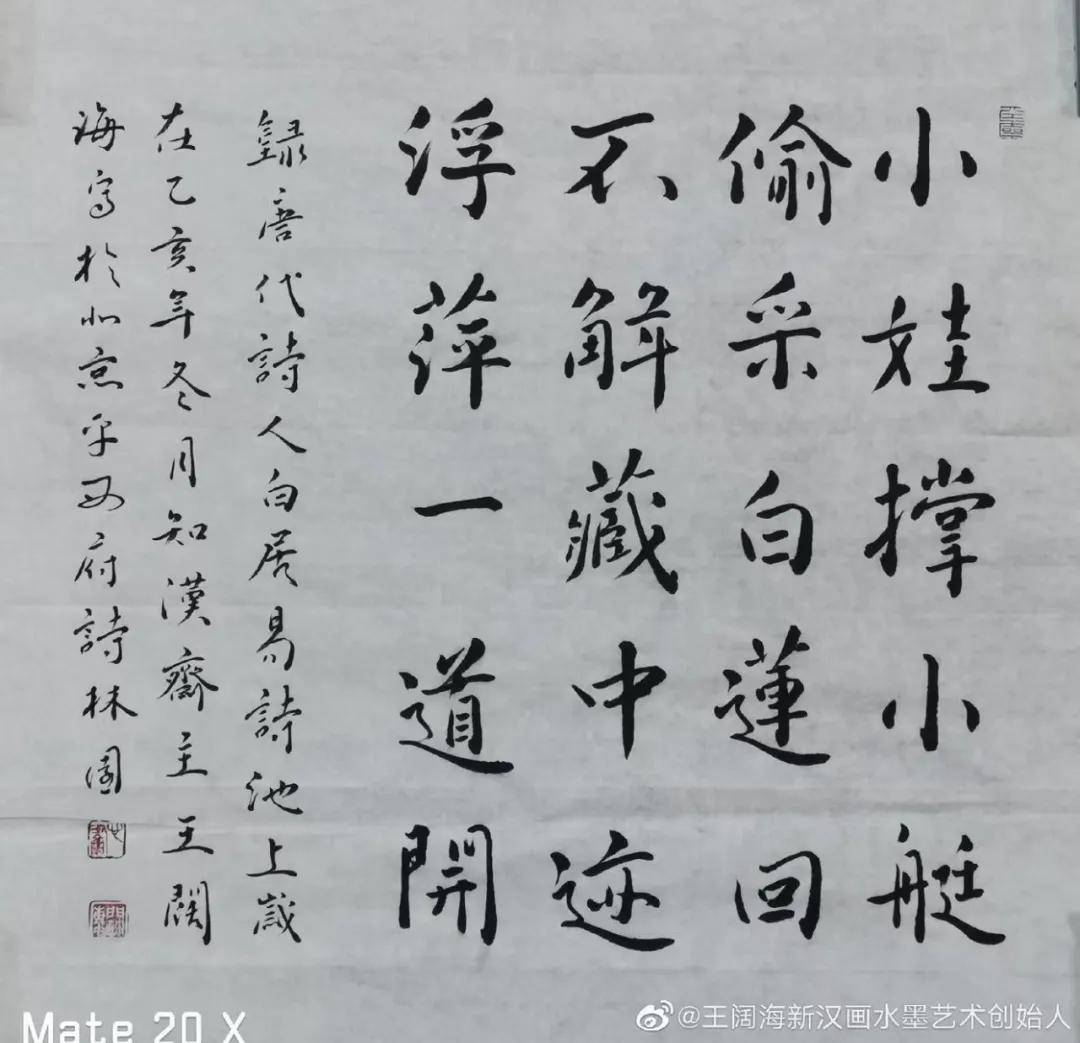 小娃撑小艇
偷采白蓮回
不解藏中迹
浮萍一道開
録唐代詩人白居易詩池上歲
在乙亥年冬月知漢齋主王闊
海寫於北京平西府詩林園
Mate 20 X
@王阔海新汉画水墨艺术创始人